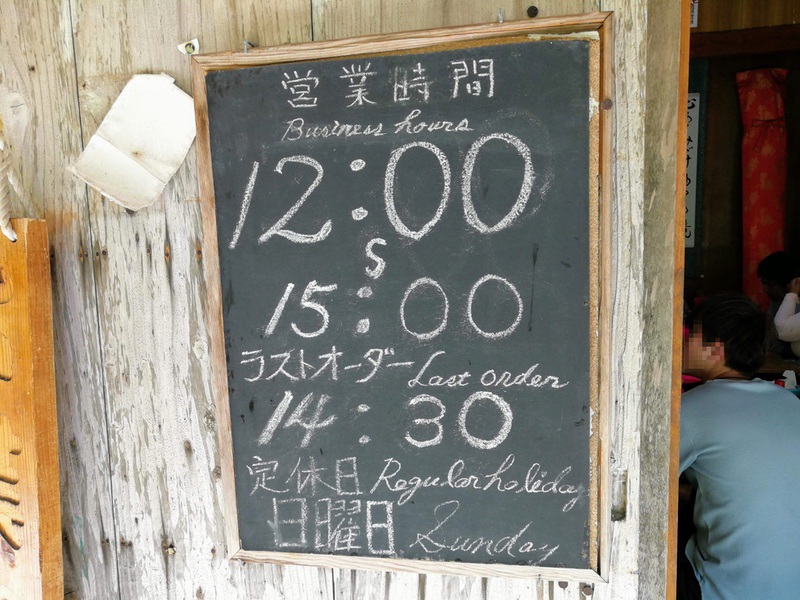 営業時間
Business hours
12:00
S
15:00
ラストオーダー Last order
14:30
定休日 Regular holiday
日曜日 Sunday